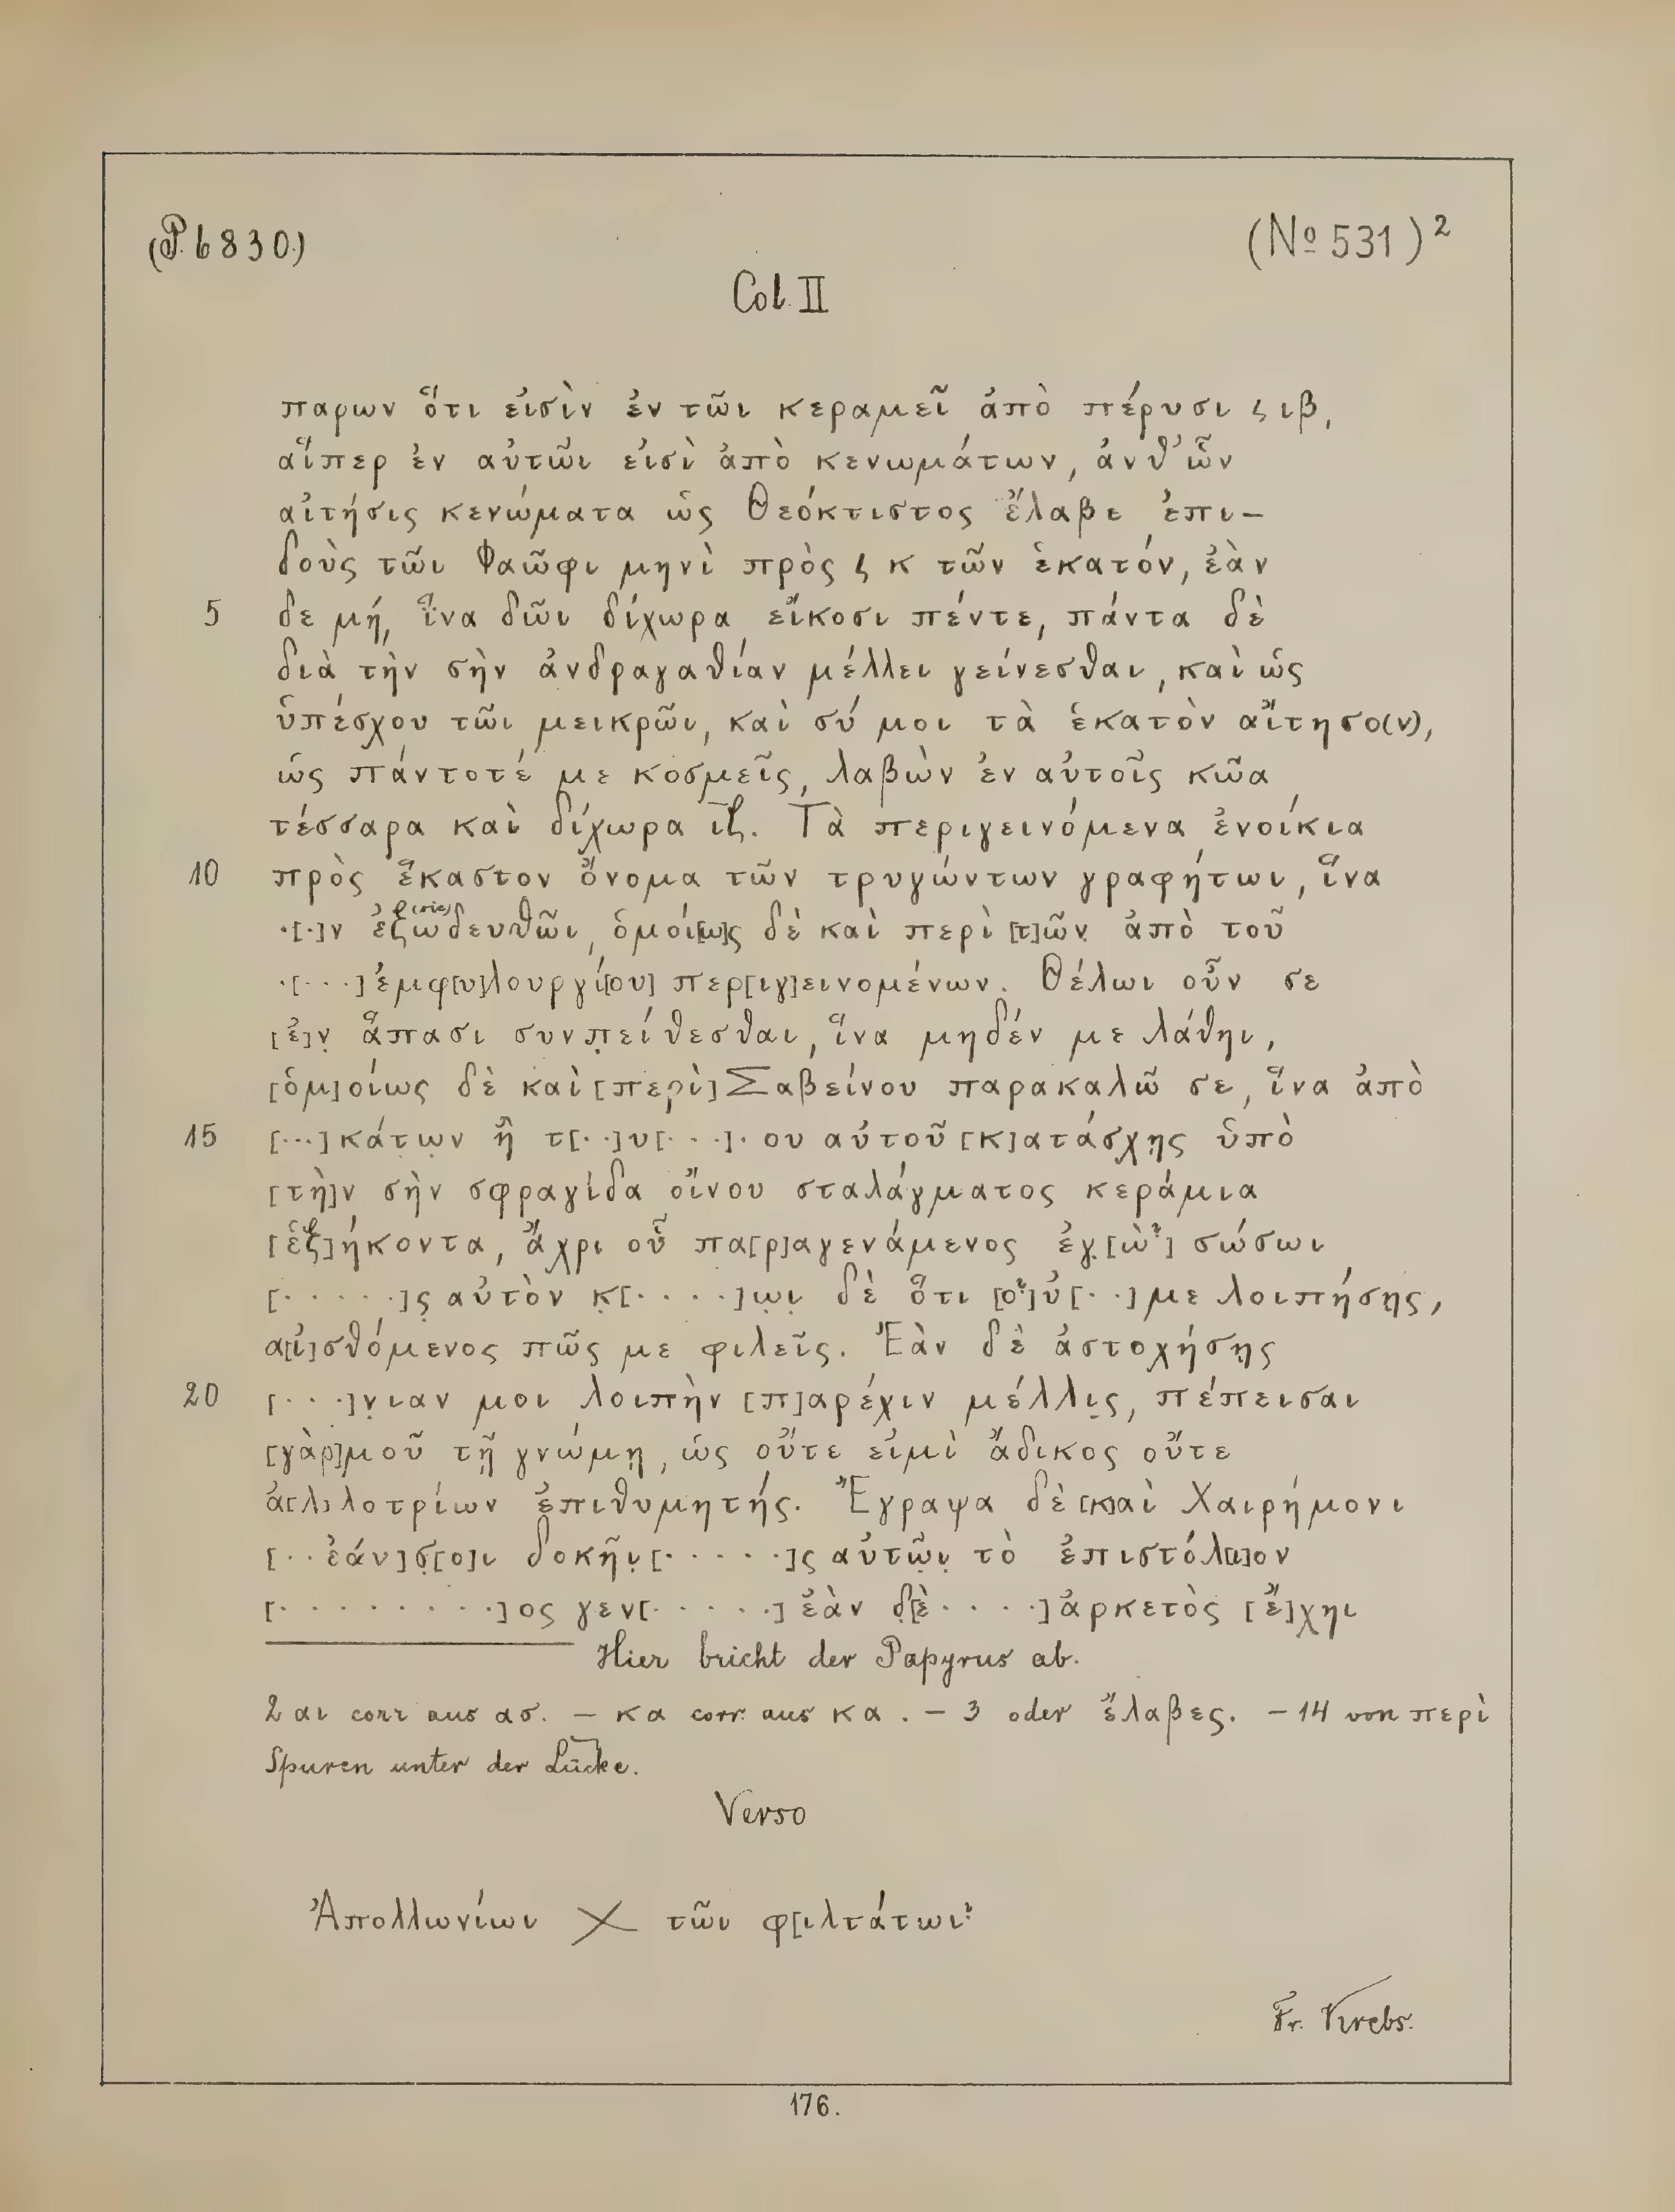 (P. 6830)
(№ 531)²
Col. II
παρων ὅτι εἰσὶν ἐν τῶι κεραμεῖ ἀπὸ πέρυσι ϛ ιβ,
αἵπερ ἐν αὐτῶι εἰσὶ ἀπὸ κενωμάτων, ἀνθ' ὧν
αἰτήσις κενώματα ὡς Θεόκτιστος ἔλαβε ἐπι-
δοὺς τῶι Φαῶφι μηνὶ πρὸς ϛ κ τῶν ἑκατόν, ἐὰν
5 δε μή, ἵνα δῶι δίχωρα εἴκοσι πέντε, πάντα δὲ
διὰ τὴν σὴν ἀνδραγαθίαν μέλλει γείνεσθαι, καὶ ὡς
ὑπέσχου τῶι μεικρῶι, καὶ σύ μοι τὰ ἑκατὸν αἴτησο(ν),
ὡς πάντοτέ με κοσμεῖς, λαβὼν ἐν αὐτοῖς κῶα
τέσσαρα καὶ δίχωρα ιζ. Τὰ περιγεινόμενα ἐνοίκια
10 πρὸς ἕκαστον ὄνομα τῶν τρυγώντων γραφήτωι, ἵνα
·[·]ν ἐξωδευθῶι, ὁμοί[ω]ς δὲ καὶ περὶ [τ]ῶν ἀπὸ τοῦ
·[····]ἐμφ[υ]λουργί[ου] περ[ιγ]εινομένων. Θέλωι οὖν σε
[ἐ]ν ἅπασι συνπείθεσθαι, ἵνα μηδέν με λάθηι,
[ὁμ]οίως δὲ καὶ [περὶ] Σαβείνου παρακαλῶ σε, ἵνα ἀπὸ
15 [···]κάτων ἢ τ[··]υ[···]· ου αὐτοῦ [κ]ατάσχῃς ὑπὸ
[τὴ]ν σὴν σφραγίδα οἴνου σταλάγματος κεράμια
[ἑξ]ήκοντα, ἄχρι οὗ πα[ρ]αγενάμενος ἐγ[ὼ?] σώσωι
[·····]ς αὐτὸν κ[·····]ωι δὲ ὅτι [ο?]ὐ[··]με λοιπήσῃς,
α[ἰ]σθόμενος πῶς με φιλεῖς. Ἐὰν δὲ ἀστοχήσῃς
20 [···]νιαν μοι λοιπὴν [π]αρέχιν μέλλις, πέπεισαι
[γὰρ]μοῦ τῇ γνώμῃ, ὡς οὔτε εἰμὶ ἄδικος οὔτε
ἀ[λ]λοτρίων ἐπιθυμητής. Ἔγραψα δὲ [κ]αὶ Χαιρήμονι
[··ἐάν]σ[ο]ι δοκῆι[·····]ς αὐτῶι τὸ ἐπιστόλ[ι]ον
[········]ος γεν[·····] ἐὰν δ[ὲ····]ἀρκετὸς [ἔ]χηι
Hier bricht der Papyrus ab.
2 αι corr aus ασ. — κα corr. aus κα . — 3 oder ἔλαβες. — 14 von περὶ
Spuren unter der Lücke.
Verso
Ἀπολλωνίωι ╳ τῶι φ[ιλτάτωι?
Fr. Krebs.
176.